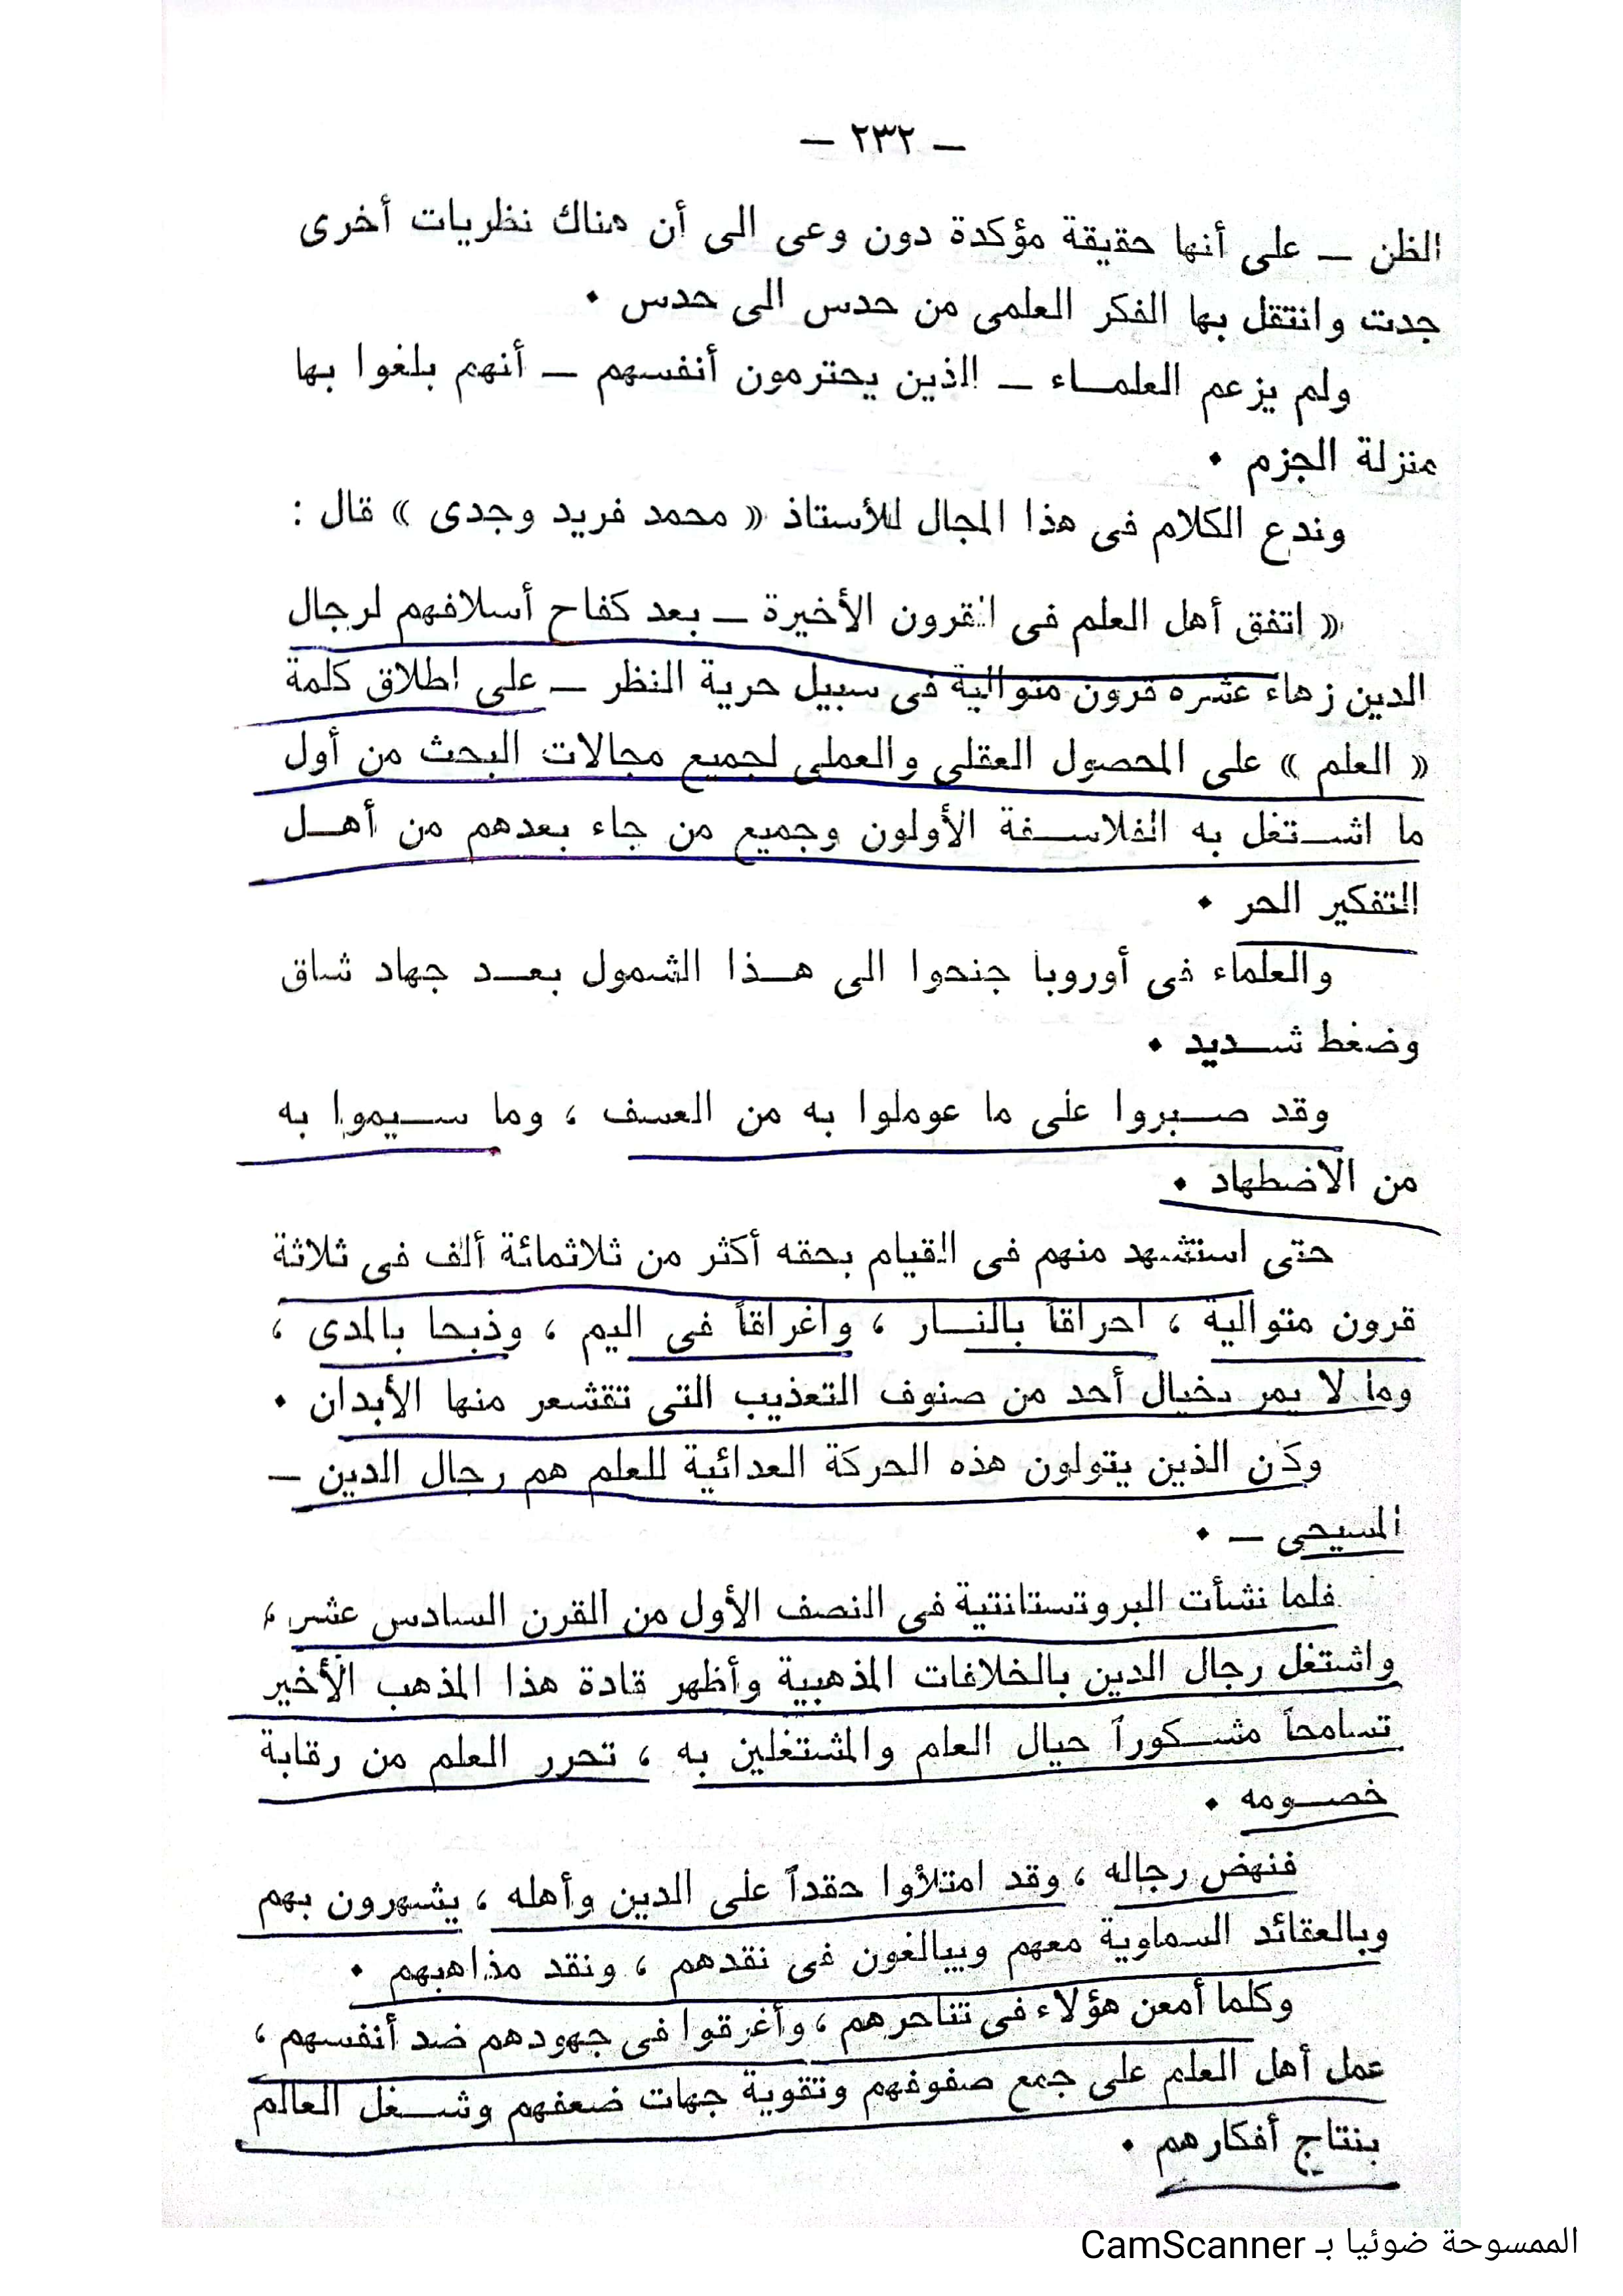 — ٢٣٢ —
الظن — على أنها حقيقة مؤكدة دون وعى الى أن هناك نظريات أخرى
جدت وانتقل بها الفكر العلمى من حدس الى حدس •
ولم يزعم العلمـاء — الذين يحترمون أنفسهم — أنهم بلغوا بها
منزلة الجزم •
وندع الكلام فى هذا المجال للأستاذ « محمد فريد وجدى » قال :
« اتفق أهل العلم فى القرون الأخيرة — بعد كفاح أسلافهم لرجال
الدين زهاء عشره قرون متوالية فى سبيل حرية النظر — على اطلاق كلمة
« العلم » على المحصول العقلى والعملى لجميع مجالات البحث من أول
ما اشـتغل به الفلاسـفة الأولون وجميع من جاء بعدهم من أهـل
التفكير الحر •
والعلماء فى أوروبا جنحوا الى هـذا الشمول بعـد جهاد شاق
وضغط شـديد •
وقد صـبروا على ما عوملوا به من العسف ، وما سـيموا به
من الاضطهاد •
حتى استشهد منهم فى القيام بحقه أكثر من ثلاثمائة ألف فى ثلاثة
قرون متوالية ، احراقاً بالنـار ، واغراقاً فى اليم ، وذبحا بالمدى ،
وما لا يمر بخيال أحد من صنوف التعذيب التى تقشعر منها الأبدان •
وكان الذين يتولون هذه الحركة العدائية للعلم هم رجال الدين —
المسيحى — •
فلما نشأت البروتستانتية فى النصف الأول من القرن السادس عشر ،
واشتغل رجال الدين بالخلافات المذهبية وأظهر قادة هذا المذهب الأخير
تسامحاً مشـكوراً حيال العلم والمشتغلين به ، تحرر العلم من رقابة
خصـومه •
فنهض رجاله ، وقد امتلأوا حقداً على الدين وأهله ، يشهرون بهم
وبالعقائد السماوية معهم ويبالغون فى نقدهم ، ونقد مذاهبهم •
وكلما أمعن هؤلاء فى تناحرهم ، وأغرقوا فى جهودهم ضد أنفسهم ،
عمل أهل العلم على جمع صفوفهم وتقوية جهات ضعفهم وشـغل العالم
بنتاج أفكارهم •
الممسوحة ضوئيا بـ CamScanner